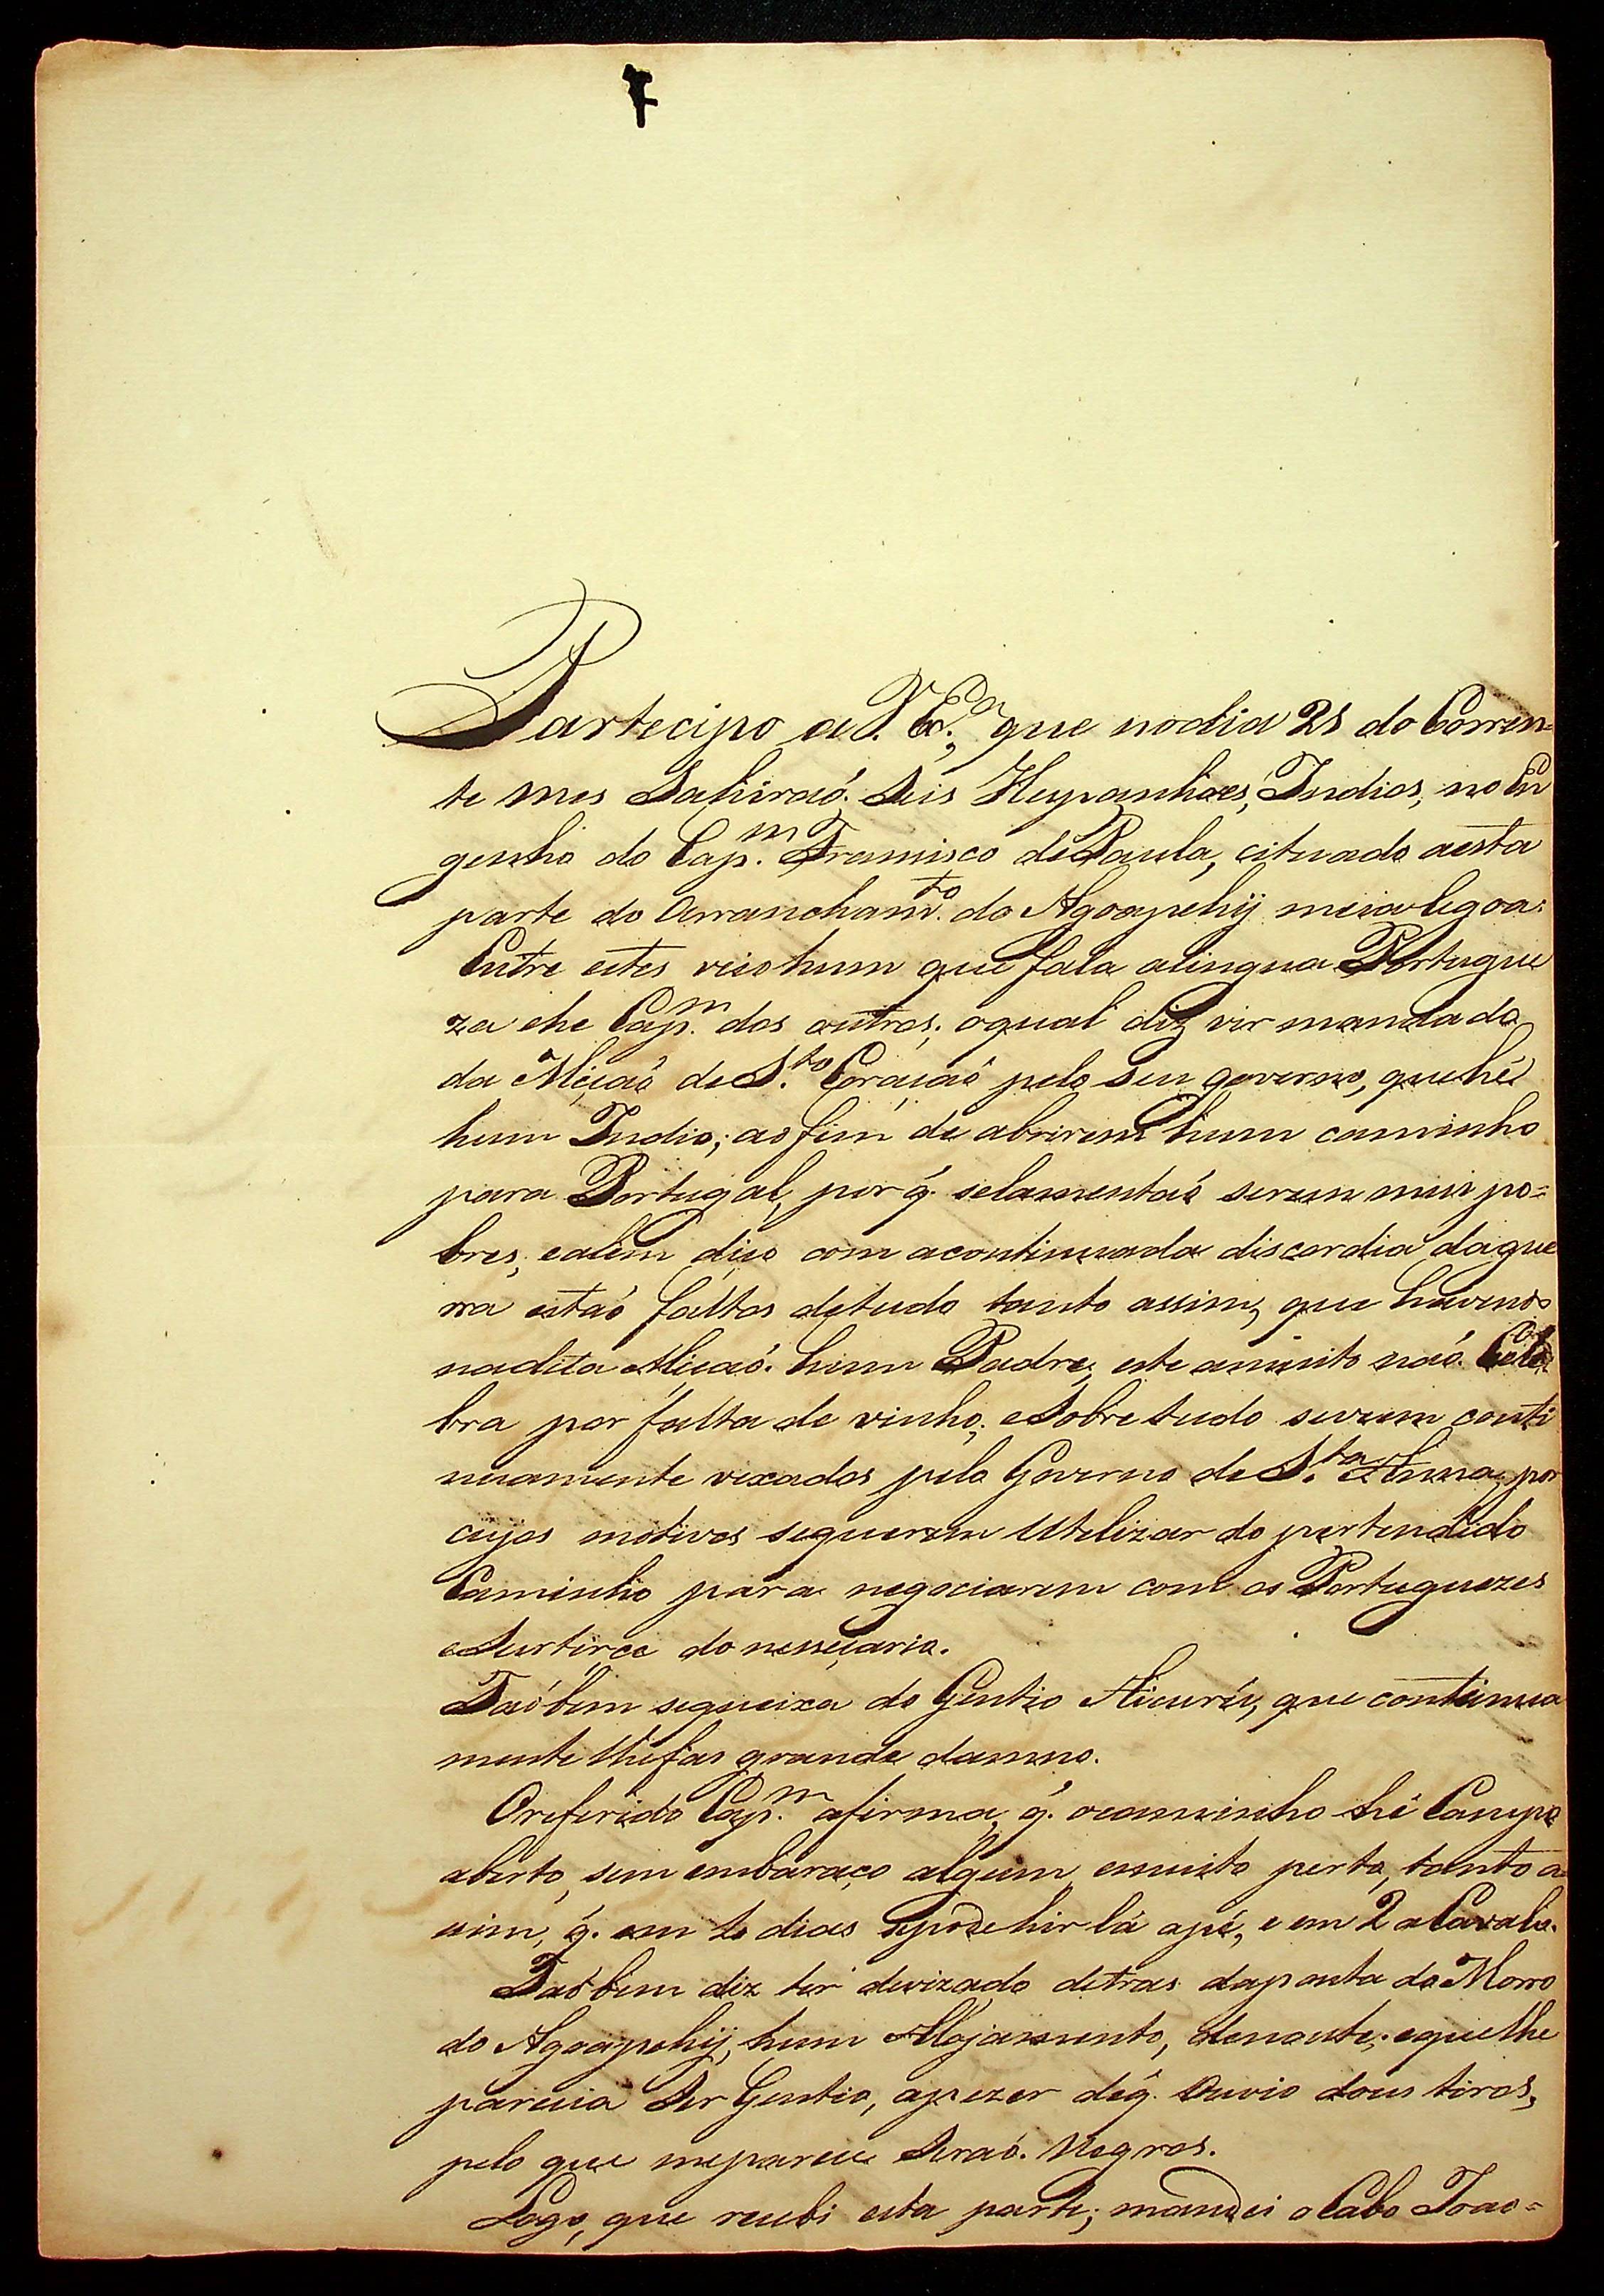 Partecipo a V. Ex.ª, que no dia 28 do Corren=
te mes Sahiraó. Seis Hespanhoes, Indios, no En
genho do Cap.m Francisco de Paula, cituado aesta
parte do Arrancham.to do Agoapehij meia legoa.
Entre estes veio hum que fala alingua Portugue
za ehe Cap.m dos outros; oqual diz vir mandado
da Miçaó de S.to Coraçaó pelo seu governo, que hé
hum Indio; ao fim de abrirem hum caminho
para Portugal, por q̃. selamentaó serem mui po=
bres, ealem diço com acontinuada discordia dague
rra estaó faltos detudo tanto assim, que havendo
nadita Miçaó. hum Padre, este amuito naó. Cele
bra por falta de vinho; eSobre tudo serem conti
nuamente vexados pelo Governo de S.ta Anna, por
cujos motivos sequerem Utelizar do pertendido
Caminho para negociarem com os Portuguezes
eSurtirce do nesseçario.
Taóbem sequeixa do Gentio Aicurú, que continua
mente lhefas grande damno.
Oreferido Cap.m afirma, q̃. ocaminho hé Campo
aberto, sem embaraço algum, emuito perto, tanto a
ssim, q̃. em 4 dias sepode hir lá apé, e em 2 aCavalo.
Taóbem diz ter devizado detras daponta do Morro
do Agoapehij, hum Alojamento, denoute; equelhe
parecia Ser Gentio, apezar deq̃. Ouvio dous tiros,
pelo que meparece Seraó. Negros.
Logo, que recebi esta parte; mandei oCabo Joao=